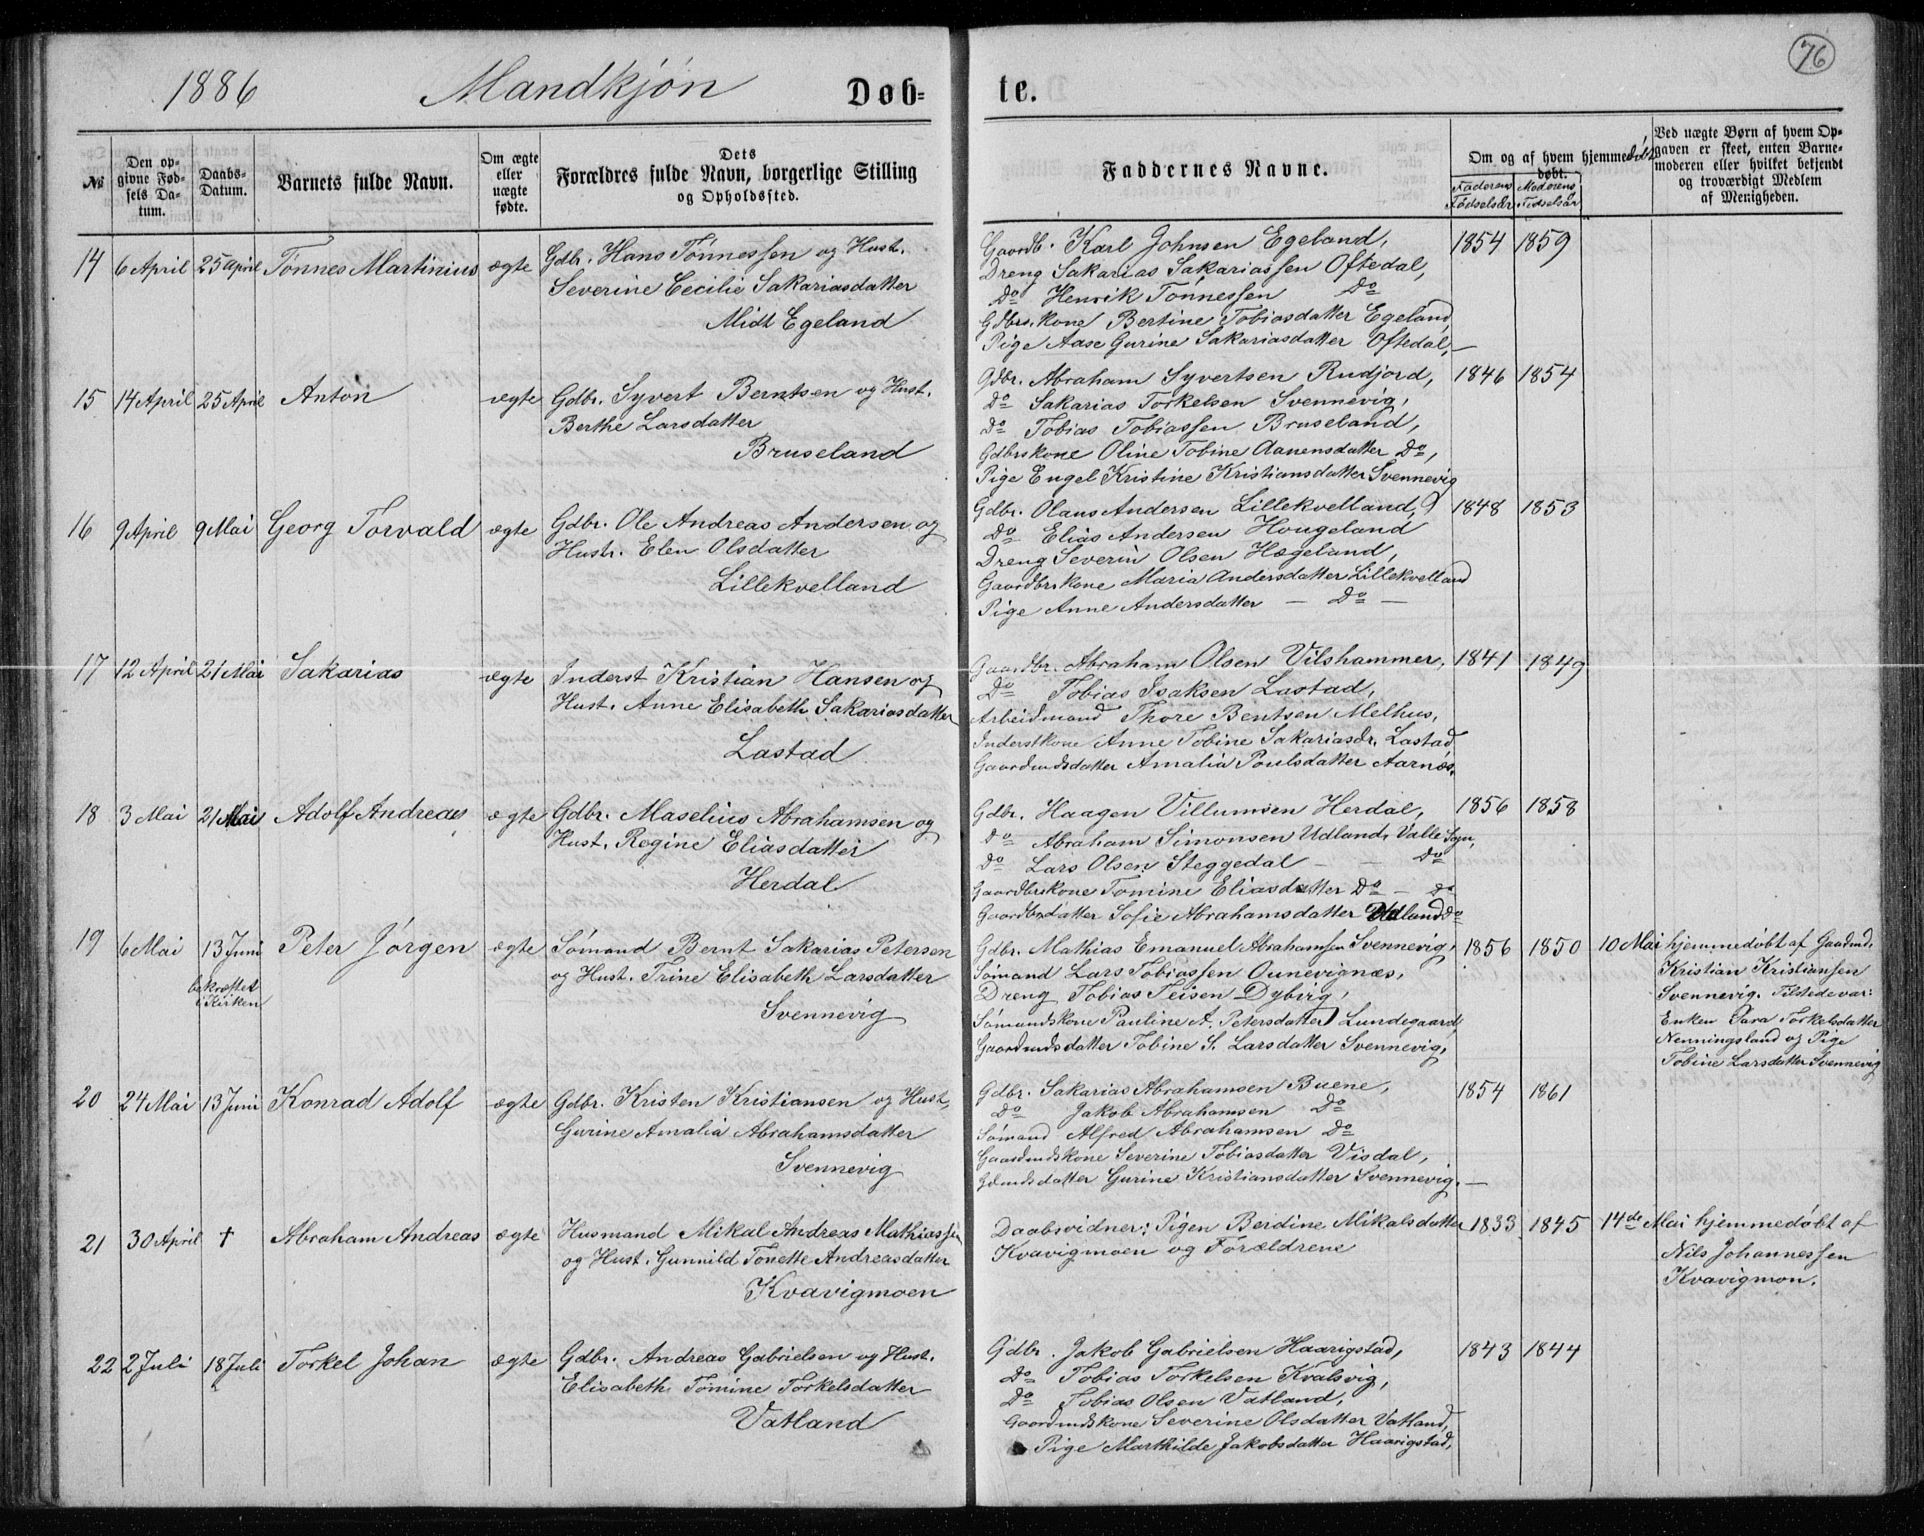 76
1886 Mandkjøn Døb= te.
№
Den op-
givne Fød-
sels Da-
tum.
Daabs-
Datum.
Barnets fulde Navn.
Om ægte
eller
uægte
fødte.
Dets
Forældres fulde Navn, borgerlige Stilling
og Opholdssted.
Faddernes Navne.
Om og af hvem hjemmedøbt
døbt.
Faderens
Fødselsår
Moderens
Fødselsår
Ved uægte Børn af hvem Op-
gaven er skeet, enten Barne-
moderen eller hvilket bekjendt
og troværdigt Medlem
af Menigheden.
14 6 April 25 April Tønnes Martinius ægte
Gdbr. Hans Tønnessen og Hust.
Severine Cecilie Sakariasdatter
Midt Egeland
Gaardb. Karl Johnsen Egeland,
Dreng Sakarias Sakariassen Oftedal,
Do Henrik Tønnessen Do
Gdbrs.kone Bertine Tobiasdatter Egeland
Pige Aase Gurine Sakariasdatter Oftedal,
1854 1859
15 14 April 25 April Anton ægte
Gdbr. Syvert Berntsen og Hust.
Berthe Larsdatter
Bruseland
Gdbr. Abraham Syvertsen Rudjord,
Do Sakarias Torkelsen Svennevig,
Do Tobias Tobiassen Bruseland,
Gdbrskone Oline Tobine Aanensdatter Do,
Pige Engel Kristine Kristiansdatter Svennevig
1846 1854
16 9 April 9 Mai Georg Torvald ægte
Gdbr. Ole Andreas Andersen og
Hustr. Elen Olsdatter
Lillekvelland
Gdbr. Olaus Andersen Lillekvelland,
Do Elias Andersen Hougeland
Dreng Severin Olsen Hægeland,
Gaardbrskone Maria Andersdatter Lillekvelland
Pige Anne Andersdatter — Do —
1848 1853
17 12 April 21 Mai Sakarias ægte
Inderst Kristian Hansen og
Hust. Anne Elisabeth Sakariasdatter
Lastad
Gaardbr. Abraham Olsen Vilshammer,
Do Tobias Isaksen Lastad,
Arbeidmand Thore Bentsen Melhus,
Inderstkone Anne Tobine Sakariasdr. Lastad
Gaardmdsdatter Amalia Poulsdatter Aarnes.
1841 1849
18 3 Mai 21 Mai Adolf Andreas ægte
Gdbr. Maselius Abrahamsen og
Hust. Regine Eliasdatter
Herdal
Gdbr. Haagen Villumsen Herdal,
Do Abraham Simonsen Udland, Valle Sogn,
Do Lars Olsen Steggedal — — Do
Gaardbrskone Tomine Eliasdatter Do — Do
Gaardbrdatter Sofie Abrahamsdatter Udland Do
1856 1858
19 6 Mai 13 Juni
bekræftet
i Kirken
Peter Jørgen ægte
Sømand Bernt Sakarias Petersen
og Hust. Trine Elisabeth Larsdatter
Svennevig
Gdbr. Mathias Emanuel Abrahamsen Svennevig,
Sømand Lars Tobiassen Ounevignæs,
Dreng Tobias Teisen Dybvig,
Sømandskone Pauline A. Petersdatter Lundegaard,
Gaardmdsdatter Tobine S. Larsdatter Svennevig,
1856 1850
10 Mai hjemmedøbt af Gaadmd.
Kristian Kristiansen
Svennevig. Tilstede var:
Enken Sara Torkelsdatter
Nenningsland og Pige
Tobine Larsdatter Svennevig
20 24 Mai 13 Juni Konrad Adolf ægte
Gdbr. Kristen Kristiansen og Hust,
Gurine Amalia Abrahamsdatter
Svennevig
Gdbr. Sakarias Abrahamsen Buene,
Do Jakob Abrahamsen Do
Sømand Alfred Abrahamsen Do
Gaardmdskone Severine Tobiasdatter Visdal,
Gdmdsdatter Gurine Kristiansdatter Svennevig.
1854 1861
21 30 April † Abraham Andreas ægte
Husmand Mikal Andreas Mathiassen
og Hust. Gunnild Tonette Andreasdatter
Kvavigmoen
Daabsvidner: Pigen Berdine Mikalsdatter
Kvavigmoen og Forældrene
1833 1845
14de Mai hjemmedøbt af
Nils Johannessen
Kvavigmon.
22 2 Juli 18 Juli Torkel Johan ægte
Gdbr. Andreas Gabrielsen og Hust.
Elisabeth Tomine Torkelsdatter
Vatland
Gdbr. Jakob Gabrielsen Haarigstad,
Do Tobias Torkelsen Kvalsvig,
Do Tobias Olsen Vatland,
Gaardmdskone Severine Olsdatter Vatland,
Pige Marthilde Jakobsdatter Haarigstad,
1843 1844